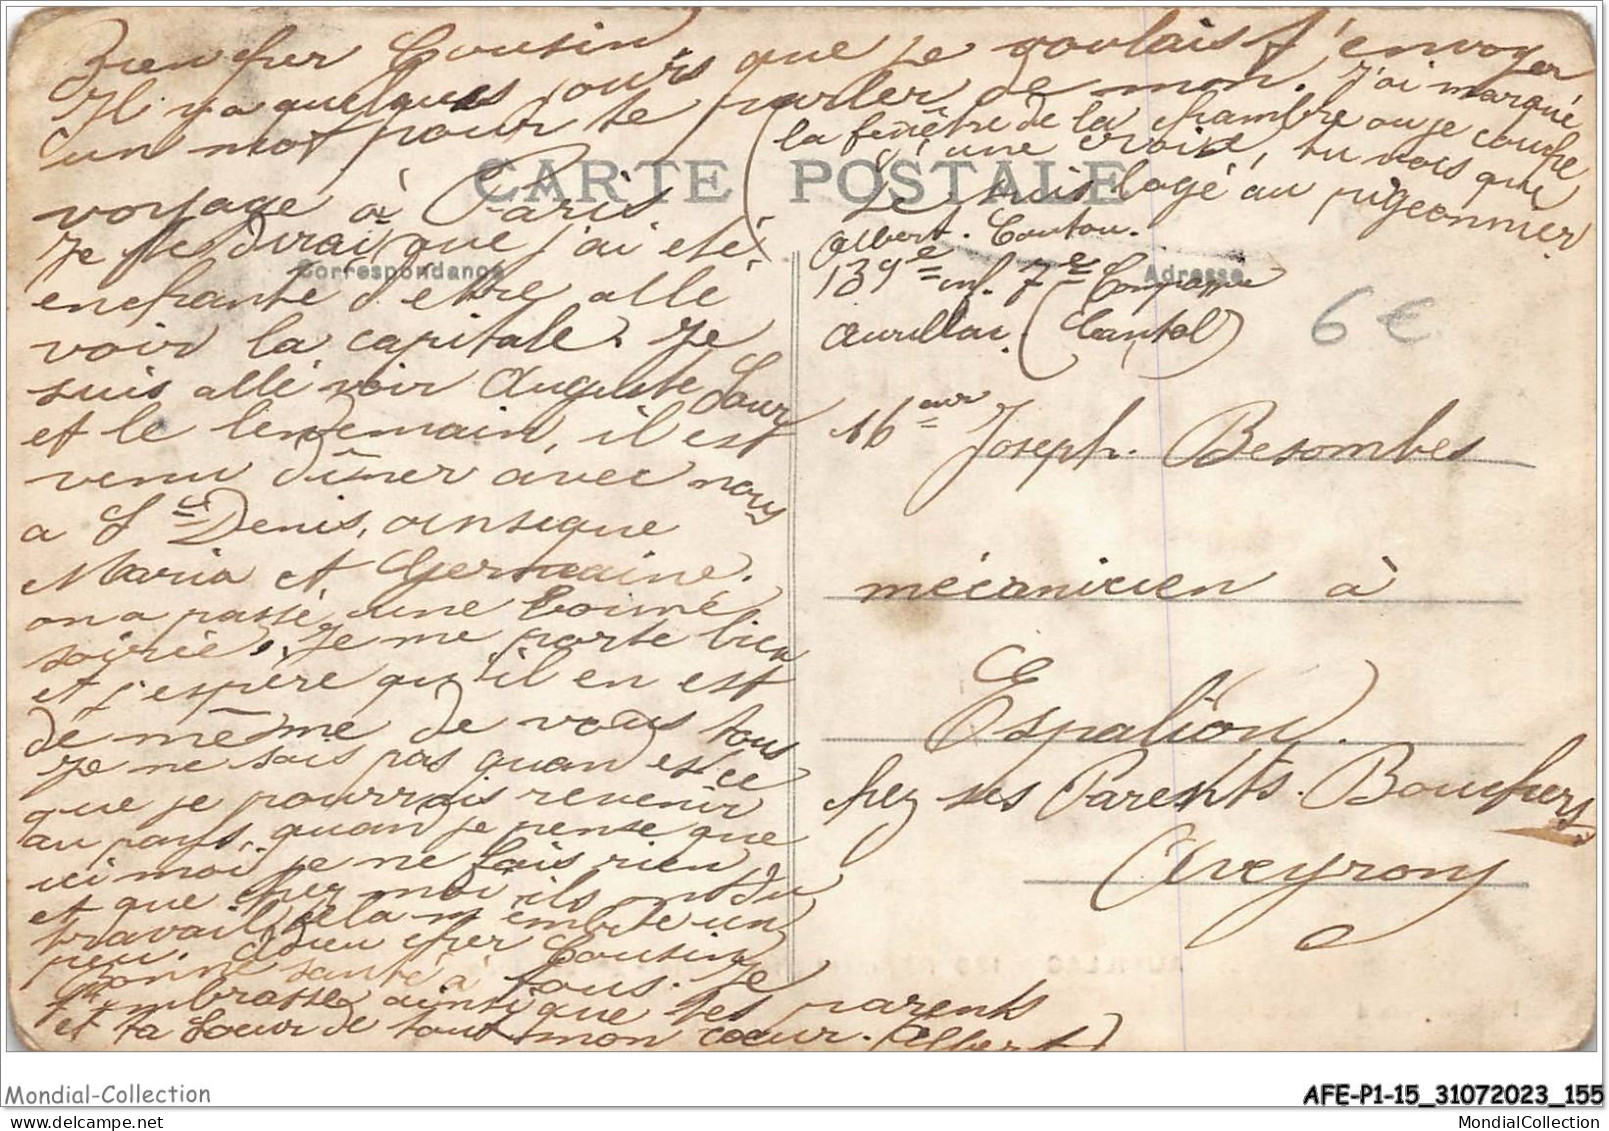 Bien cher Cousin
Il y a quelques jours que je voulais t'envoyer
un mot pour te parler de mon
voyage à Paris.
Je te dirai que j'ai eté
enchanté d'être allé
voir la capitale. Je
suis allé voir Auguste
et le lendemain, il est
venu dîner avec nous
a St Denis, ainsique
Maria et Germaine.
on a passé une bonne
soirée. Je me porte bien
et j'espère qu'il en est
de même de vous tous
Je ne sais pas quand est ce
que je pourrais revenir
au pays, quand je pense que
ici moi je ne fais rien
et que chez moi ils ont du
travail cela m'embête un
peu. Adieu cher Cousin
Bonne santé à tous. Je
t'embrasse ainsi que tes parents
et ta soeur de tout mon coeur. Albert
J'ai marqué
la fenêtre de la chambre ou je couche
d'une croix, tu vois que
je suis logé au pigeonnier
CARTE POSTALE
Correspondance
Adresse
Albert. Couton.
139e inf. 7e Compagnie
Aurillac. (Cantal)
6€
Joseph. Besombes
mécanicien à
Espalion.
chez ses Parents. Bouchers
Aveyron
Mondial-Collection
AFE-P1-15_31072023_155
MondialCollection